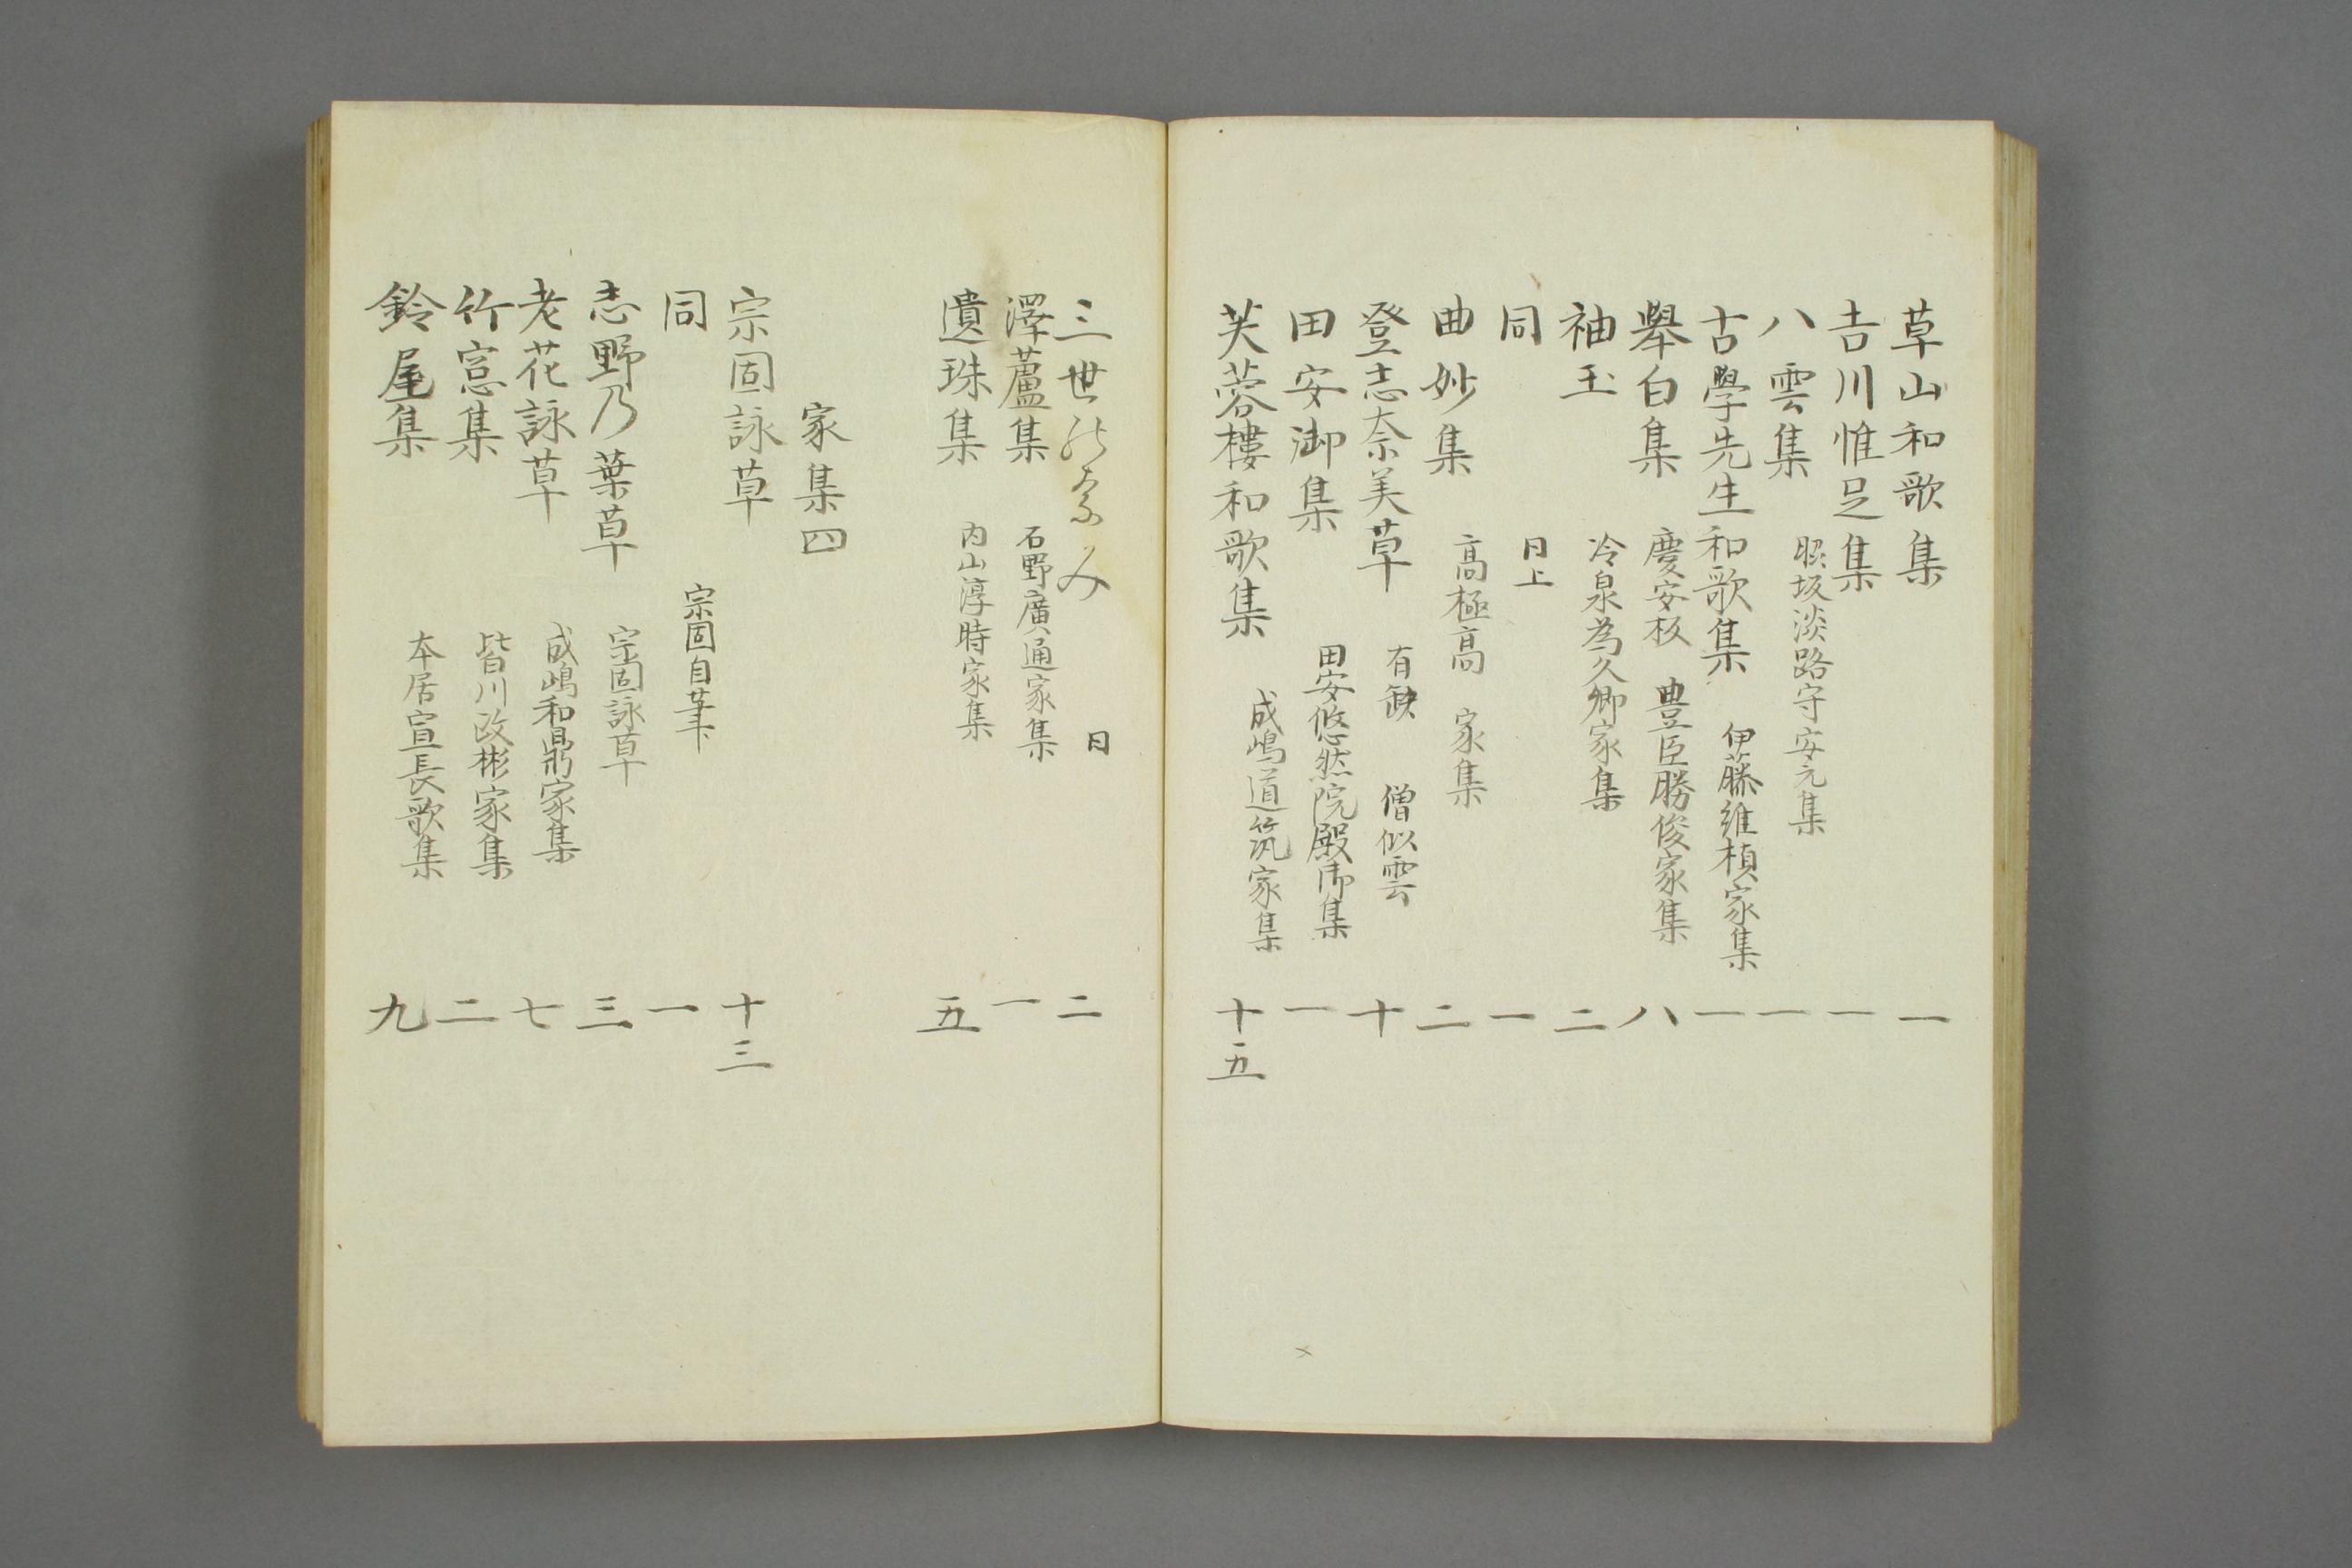 草山和歌集 一
吉川惟足集 一
八雲集 脇坂淡路守安元集 一
古學先生和歌集 伊藤維楨家集 一
擧白集 慶安板 豊臣勝俊家集 八
袖玉 冷泉為久卿家集 二
同 日上 一
曲妙集 高極高 家集 二
登志奈美草 有缺 僧似雲 十
田安御集 田安悠然院殿御集 一
芙蓉樓和歌集 成嶋道筑家集 十五
三世 日 二
澤蘆集 石野廣通家集 一
遺珠集 内山淳時家集 五
家集四
宗固詠草 十三
同 宗固自筆 一
志野乃葉草 宗固詠草 三
老花詠草 成嶋和鼎家集 七
竹窓集 皆川改彬家集 二
鈴屋集 本居宣長歌集 九